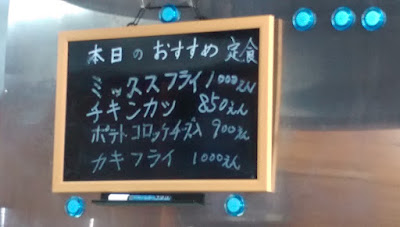 本日のおすすめ定食
ミックスフライ1000えん
チキンカツ 850えん
ポテトコロッケチーズ入 900えん
カキフライ 1000えん